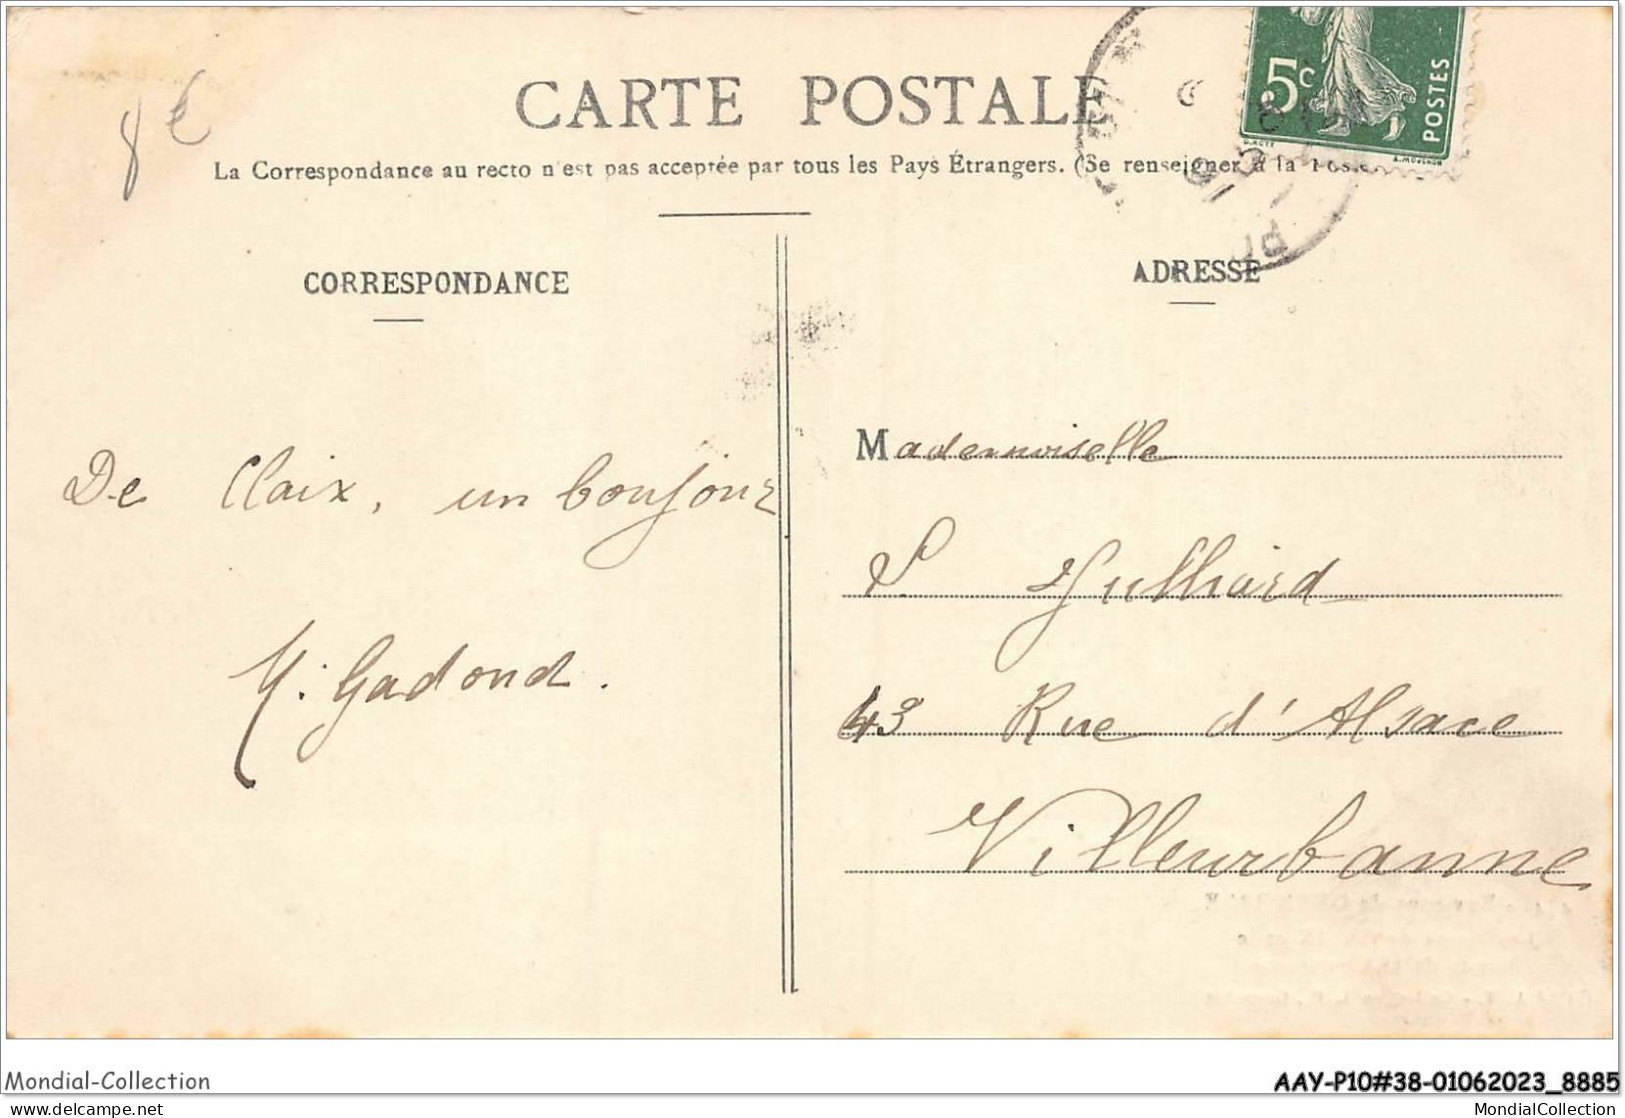 8€
CARTE POSTALE
La Correspondance au recto n'est pas acceptée par tous les Pays Étrangers. (Se renseigner à la Poste
5c
POSTES
CORRESPONDANCE
De Claix, un bonjour
Gadond.
ADRESSE
Mademoiselle
Julliard
43 Rue d'Alsace
Villeurbanne
Mondial-Collection
AAY-P10#38-01062023_8885
MondialCollection.com
MondialCollection